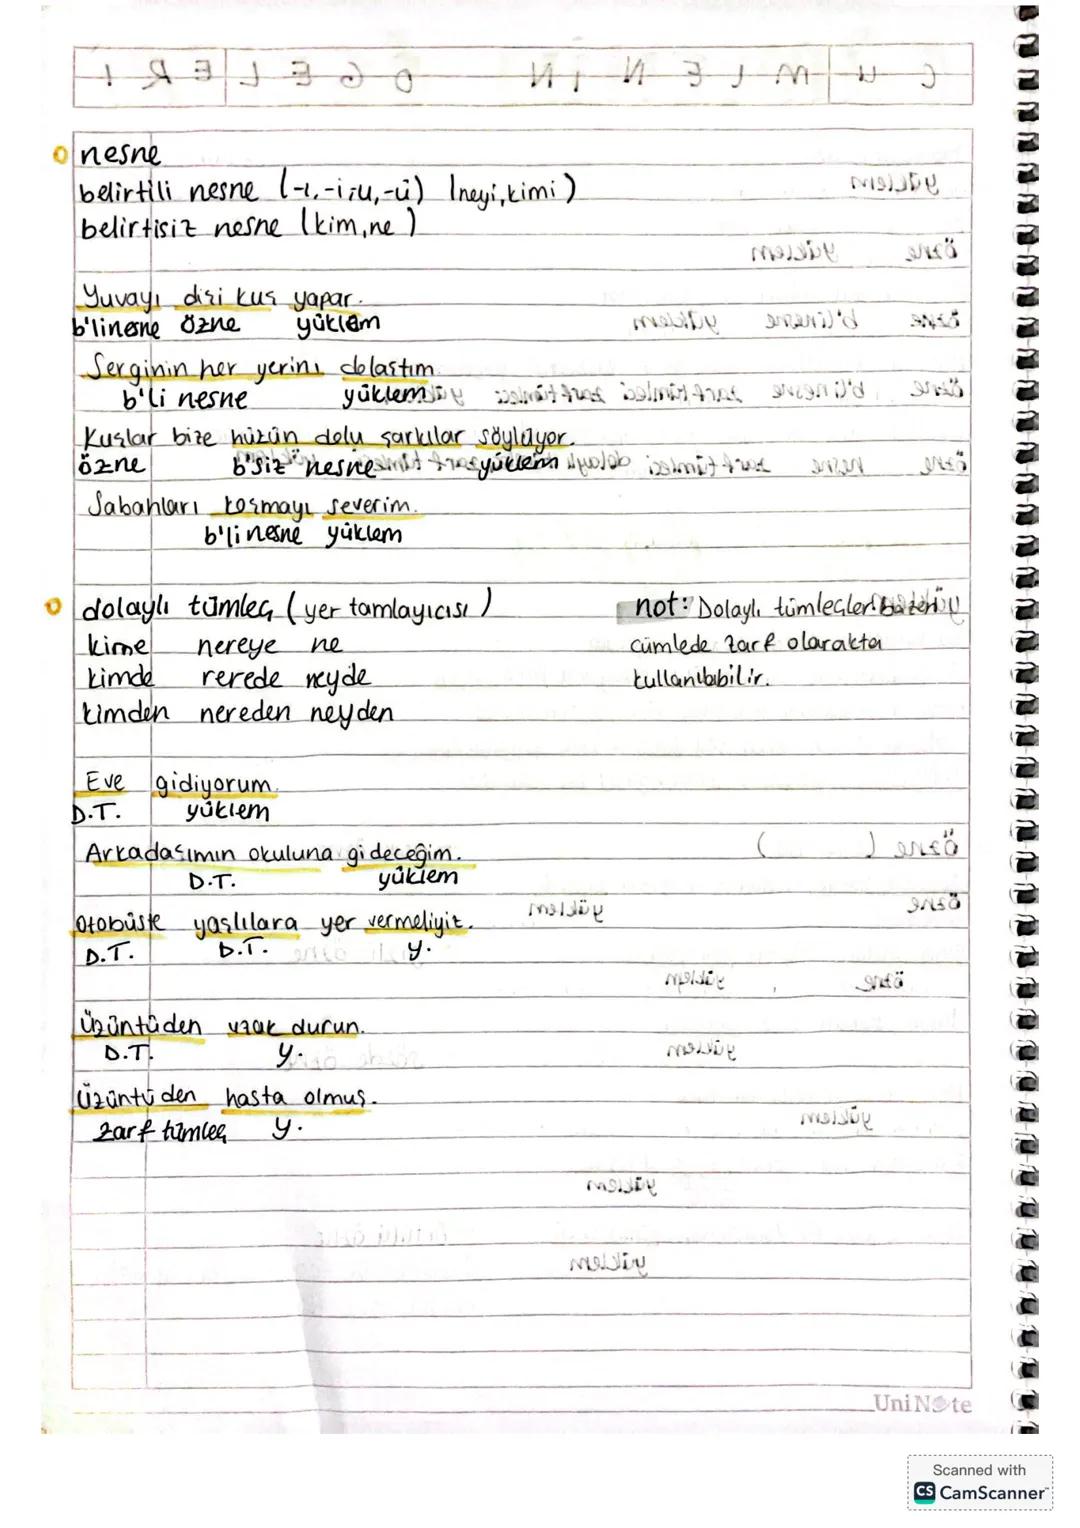 CÜMLENİN ÖGELERİ
nesne
belirtili nesne (-ı,-i,-u,-ü) (neyi,kimi)
belirtisiz nesne (kim,ne)
Yuvayı dişi kuş yapar.
b'linesne özne yüklem
Serginin her yerini dolaştım
b'li nesne yüklem
Kuşlar bize hüzün dolu şarkılar söylüyor.
özne b'siz nesne yüklem
Sabahları koşmayı severim.
b'li nesne yüklem
dolaylı tümleç (yer tamlayıcısı)
kime nereye ne
kimde rerede neyde
kimden nereden neyden
not: Dolaylı tümleçler bazen
cümlede zarf olarakta
kullanılabilir.
Eve gidiyorum.
D.T. yüklem
Arkadaşımın okuluna gideceğim.
D.T. yüklem
Otobüste yaşlılara yer vermeliyiz.
D.T. D.T. y.
Üzüntüden uzak durun.
D.T. y.
Üzüntüden hasta olmuş.
zarf tümleç y.
UniNote
Scanned with
CS CamScanner